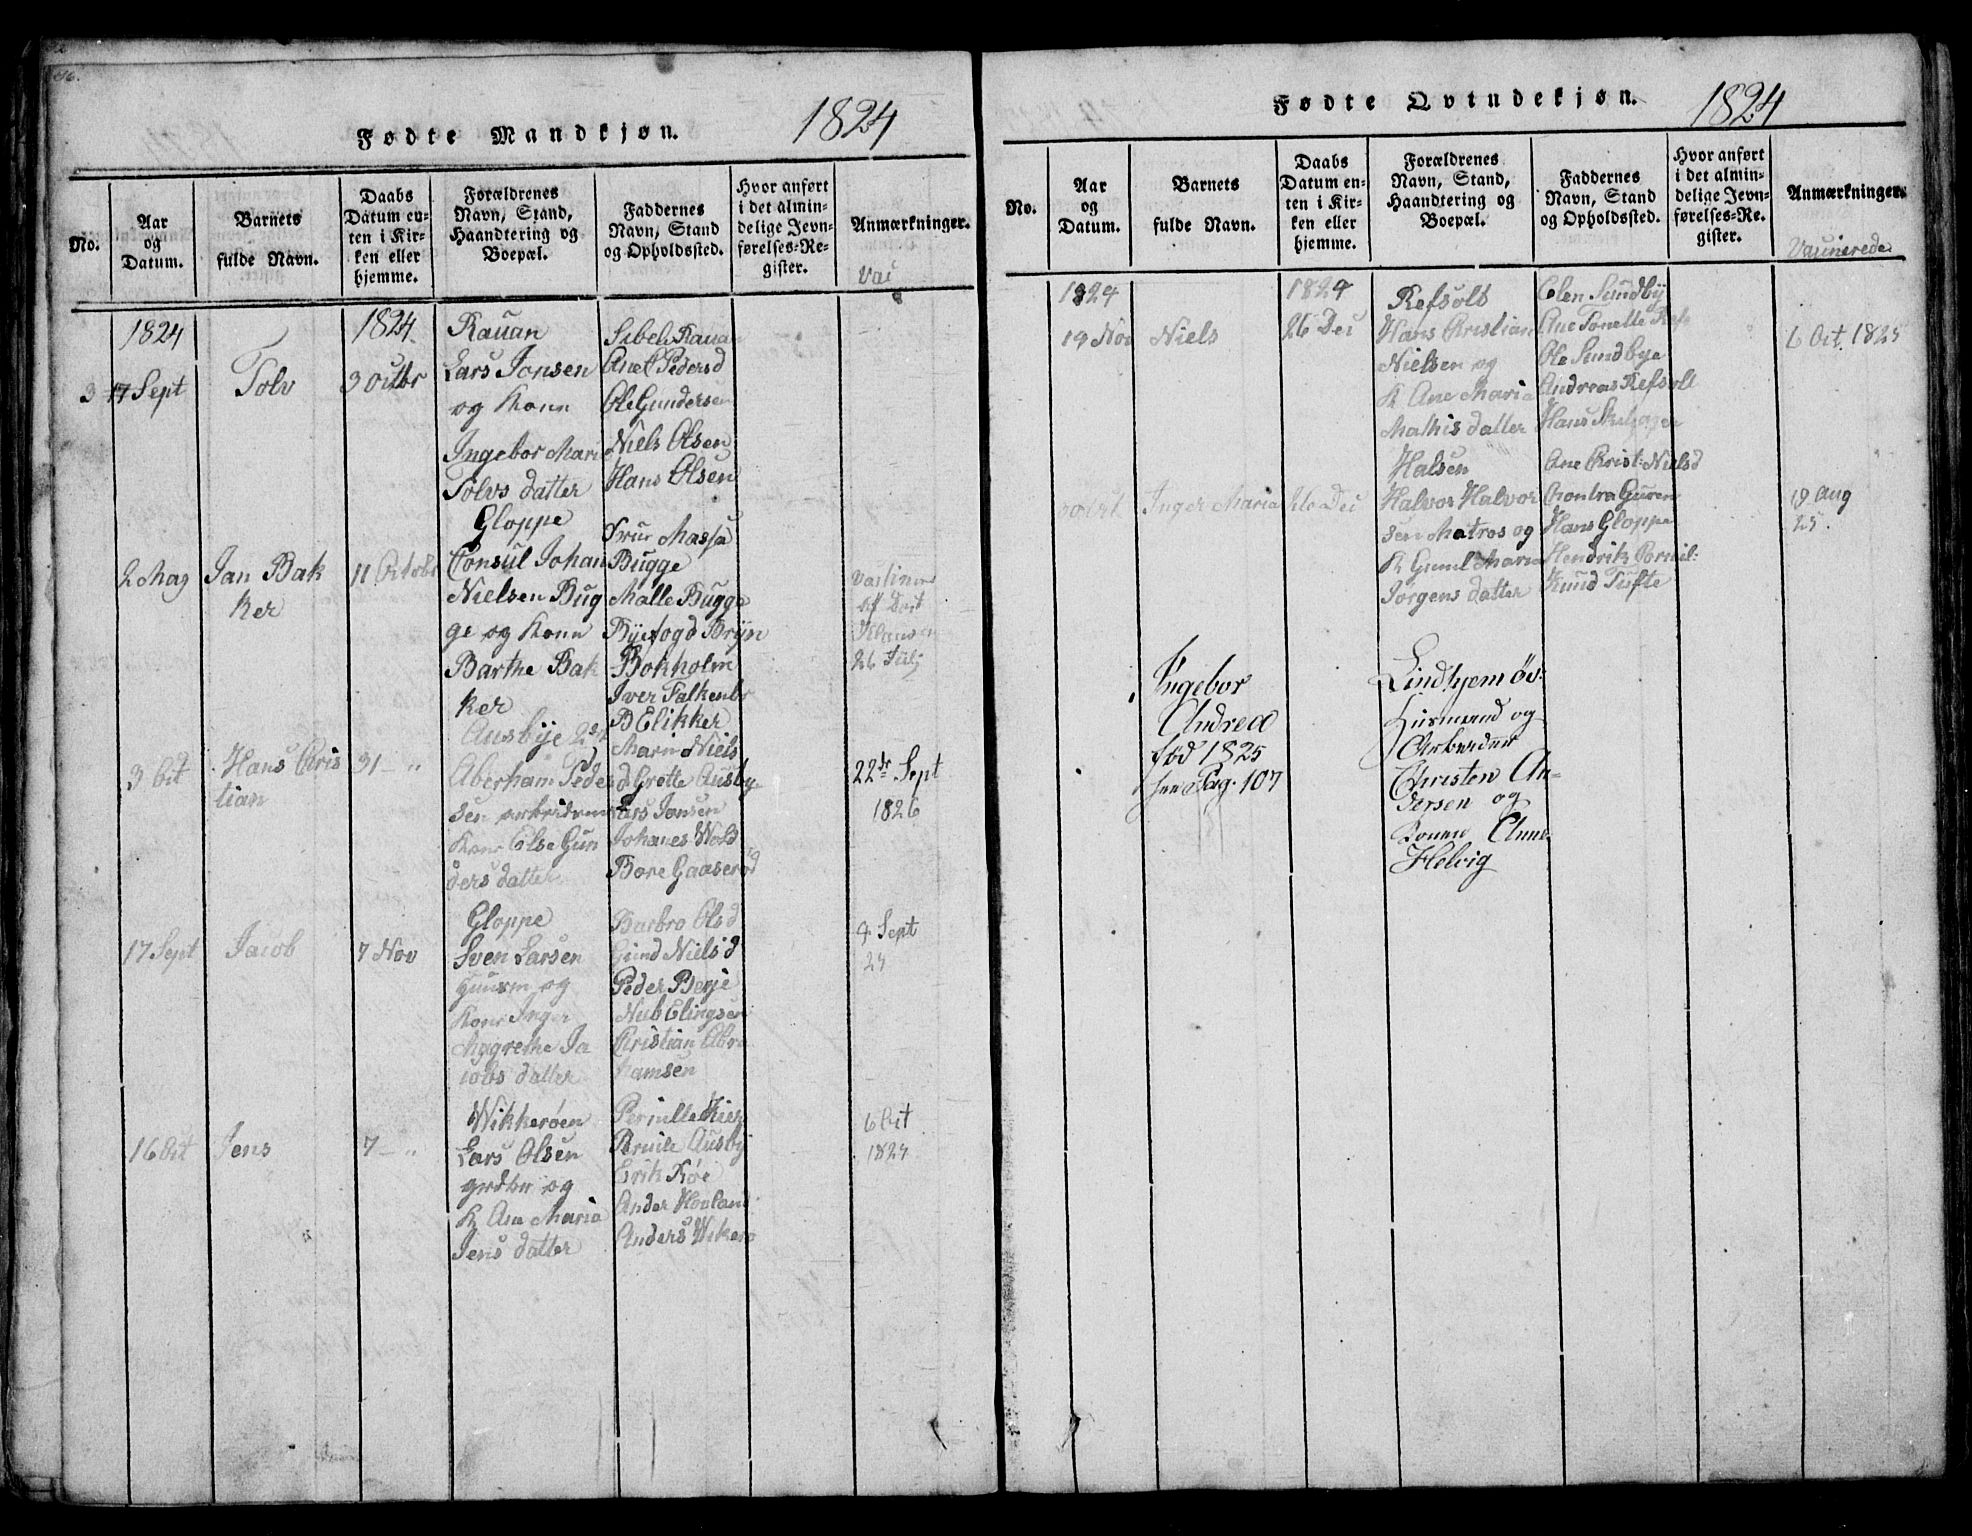 Fødte Mandkjøn. 1824
No.
Aar og Datum.
Barnets fulde Navn.
Daabs Datum enten i Kirken eller hjemme.
Forældrenes Navn, Stand, Haandtering og Boepæl.
Faddernes Navn, Stand og Opholdssted.
Hvor anført i det almindelige Jevnførelses-Register.
Anmærkninger.
Vac
1824
3
17 Sept
Tolv
1824
3 Octbr
Rauan
Lars Jonsen
og Konn
Ingebor Mari
Tolvs datter
Sibele Rauan
Anel Pedersd
Ole Gundersen
Niels Olsen
Hans Olsen
2 May
Jan Bak
ker
11 Octobr
Gloppe
Consul Johan
Nielsen Bug
ge og Konn
Barthe Bak
ker
Frur Massa
Bugge
Malle Bugge
Byefogd Bryn
Bokholm
Iver Falkenbr
B Elikker
26 July
3 Oct
Hans Chris
tian
31 – "
Ausbye
Aberham Peder
sen
Kone Else Gun
ders datter
Marin Niels
d Grette Ausbye
Lars Jansen
Johanes Wold
Bore Gaaserød
22de Sept
1826
17 Sept
Jacob
7 Nov
Gloppe
Sven Larsen
Huusm og
Kone Inger
Magrethe Ja
cobs datter
Barbro Olsd
Gund Nielsd
Peder Berje
Nub Elingsen
Christian Abra
hamsen
4 Sept
16 Oct
Jens
7 – "
Wikkerøen
Lars Olsen
grdbr og
K Ane Maria
Jens datter
Pernille
Pernile Ausby
Erik Røe
Ander Hovland
Anders Wikerø
6 Oct
Fødte Qvindekjøn. 1824
No.
Aar og Datum.
Barnets fulde Navn.
Daabs Datum enten i Kirken eller hjemme.
Forældrenes Navn, Stand, Haandtering og Boepæl.
Faddernes Navn, Stand og Opholdssted.
Hvor anført i det almindelige Jevnførelses-Register.
Anmærkninger.
Vaccinerede
1824
19 Nov
Niels
1824
26 Dec
Refsolt
Hans Kristian
Nielsen og
K Ane Maria
Mathis datter
Olen Sundby
Ane Tonette Refs
Ole Sundbye
Andreas Refsolt
6 Oct. 1825
Inger Maria
Halsen
Halvor Halvor
sen Matros og
K Gunil Maria
Jorgens datter
Ane Christ: Nielsd
Hans Gloppe
Hendrik
Knud Tufte
19 Aug
25.
Ingebor
Andrea
fød 1825
see Pag. 107
Lindhjem øs:
Huusmand og
Arbeider
Christen An-
dersen og
Konne Anne
Helvig